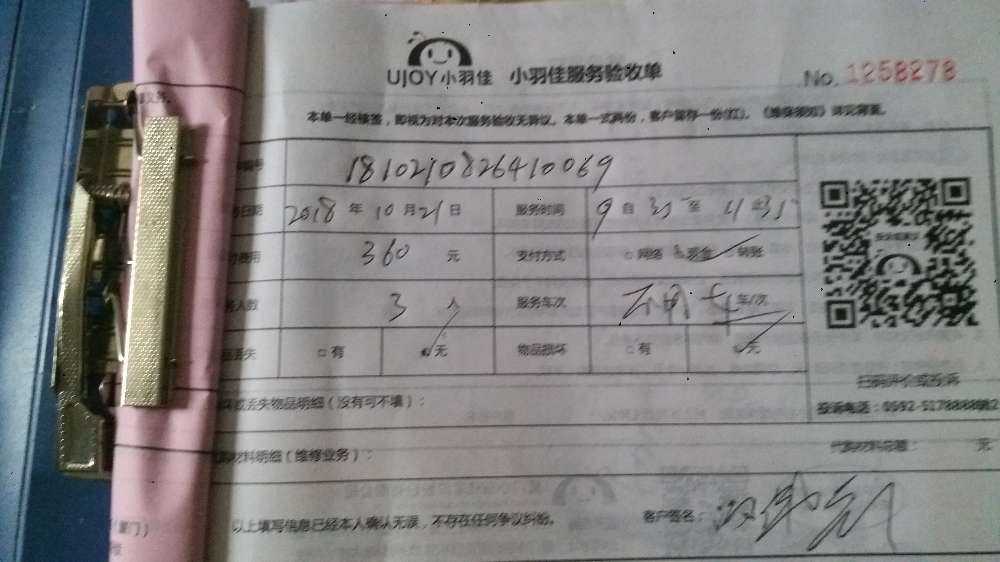 UJOY小羽佳 小羽佳服务验收单 No. 1258278
本单一经核签，即视为对本次服务验收无异议。本单一式两份，客户留存一份(红)。《维保须知》详见背面。
号 1810210826410069
日期 2018 年 10 月 21 日 服务时间 9 自 35 至 11 35
费用 360 元 支付方式 □网络 现金 转账
人数 3 人 服务车次 车/次
丢失 □有 无 物品损坏 □有 无
扫码评价或投诉
坏或丢失物品明细（没有可不填）： 投诉电话：0592-5178888
购材料明细（维修业务）： 代购材料总额： 元
厦门）
以上填写信息已经本人确认无误，不存在任何争议纠纷。 客户签名：